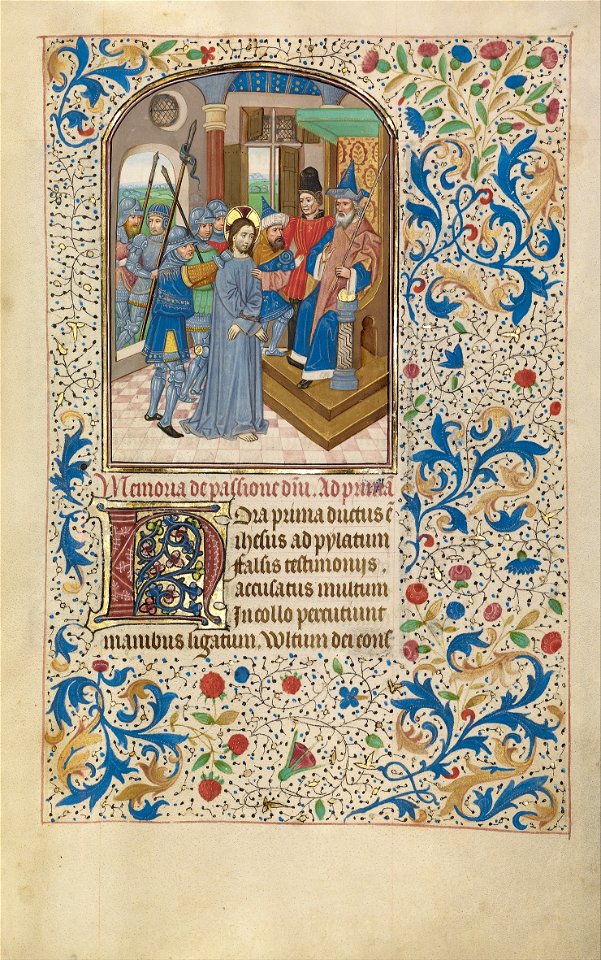 Memoria de passione dñi. Ad primã
Hora prima ductus ẽ
ihesus ad pylatum
falsis testimonijs.
accusatus multum
In collo percutiunt
manibus ligatum. Wltum dei cons